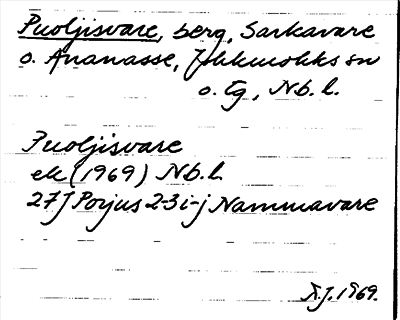 Puoljisvare, berg, Sarkavare
o. Ananasse, Jokkmokks sn
o. tg, Nb. l.
Puoljisvare
ek (1969) Nb. l.
27J Porjus 2-3 i-j Nammavare
1969.